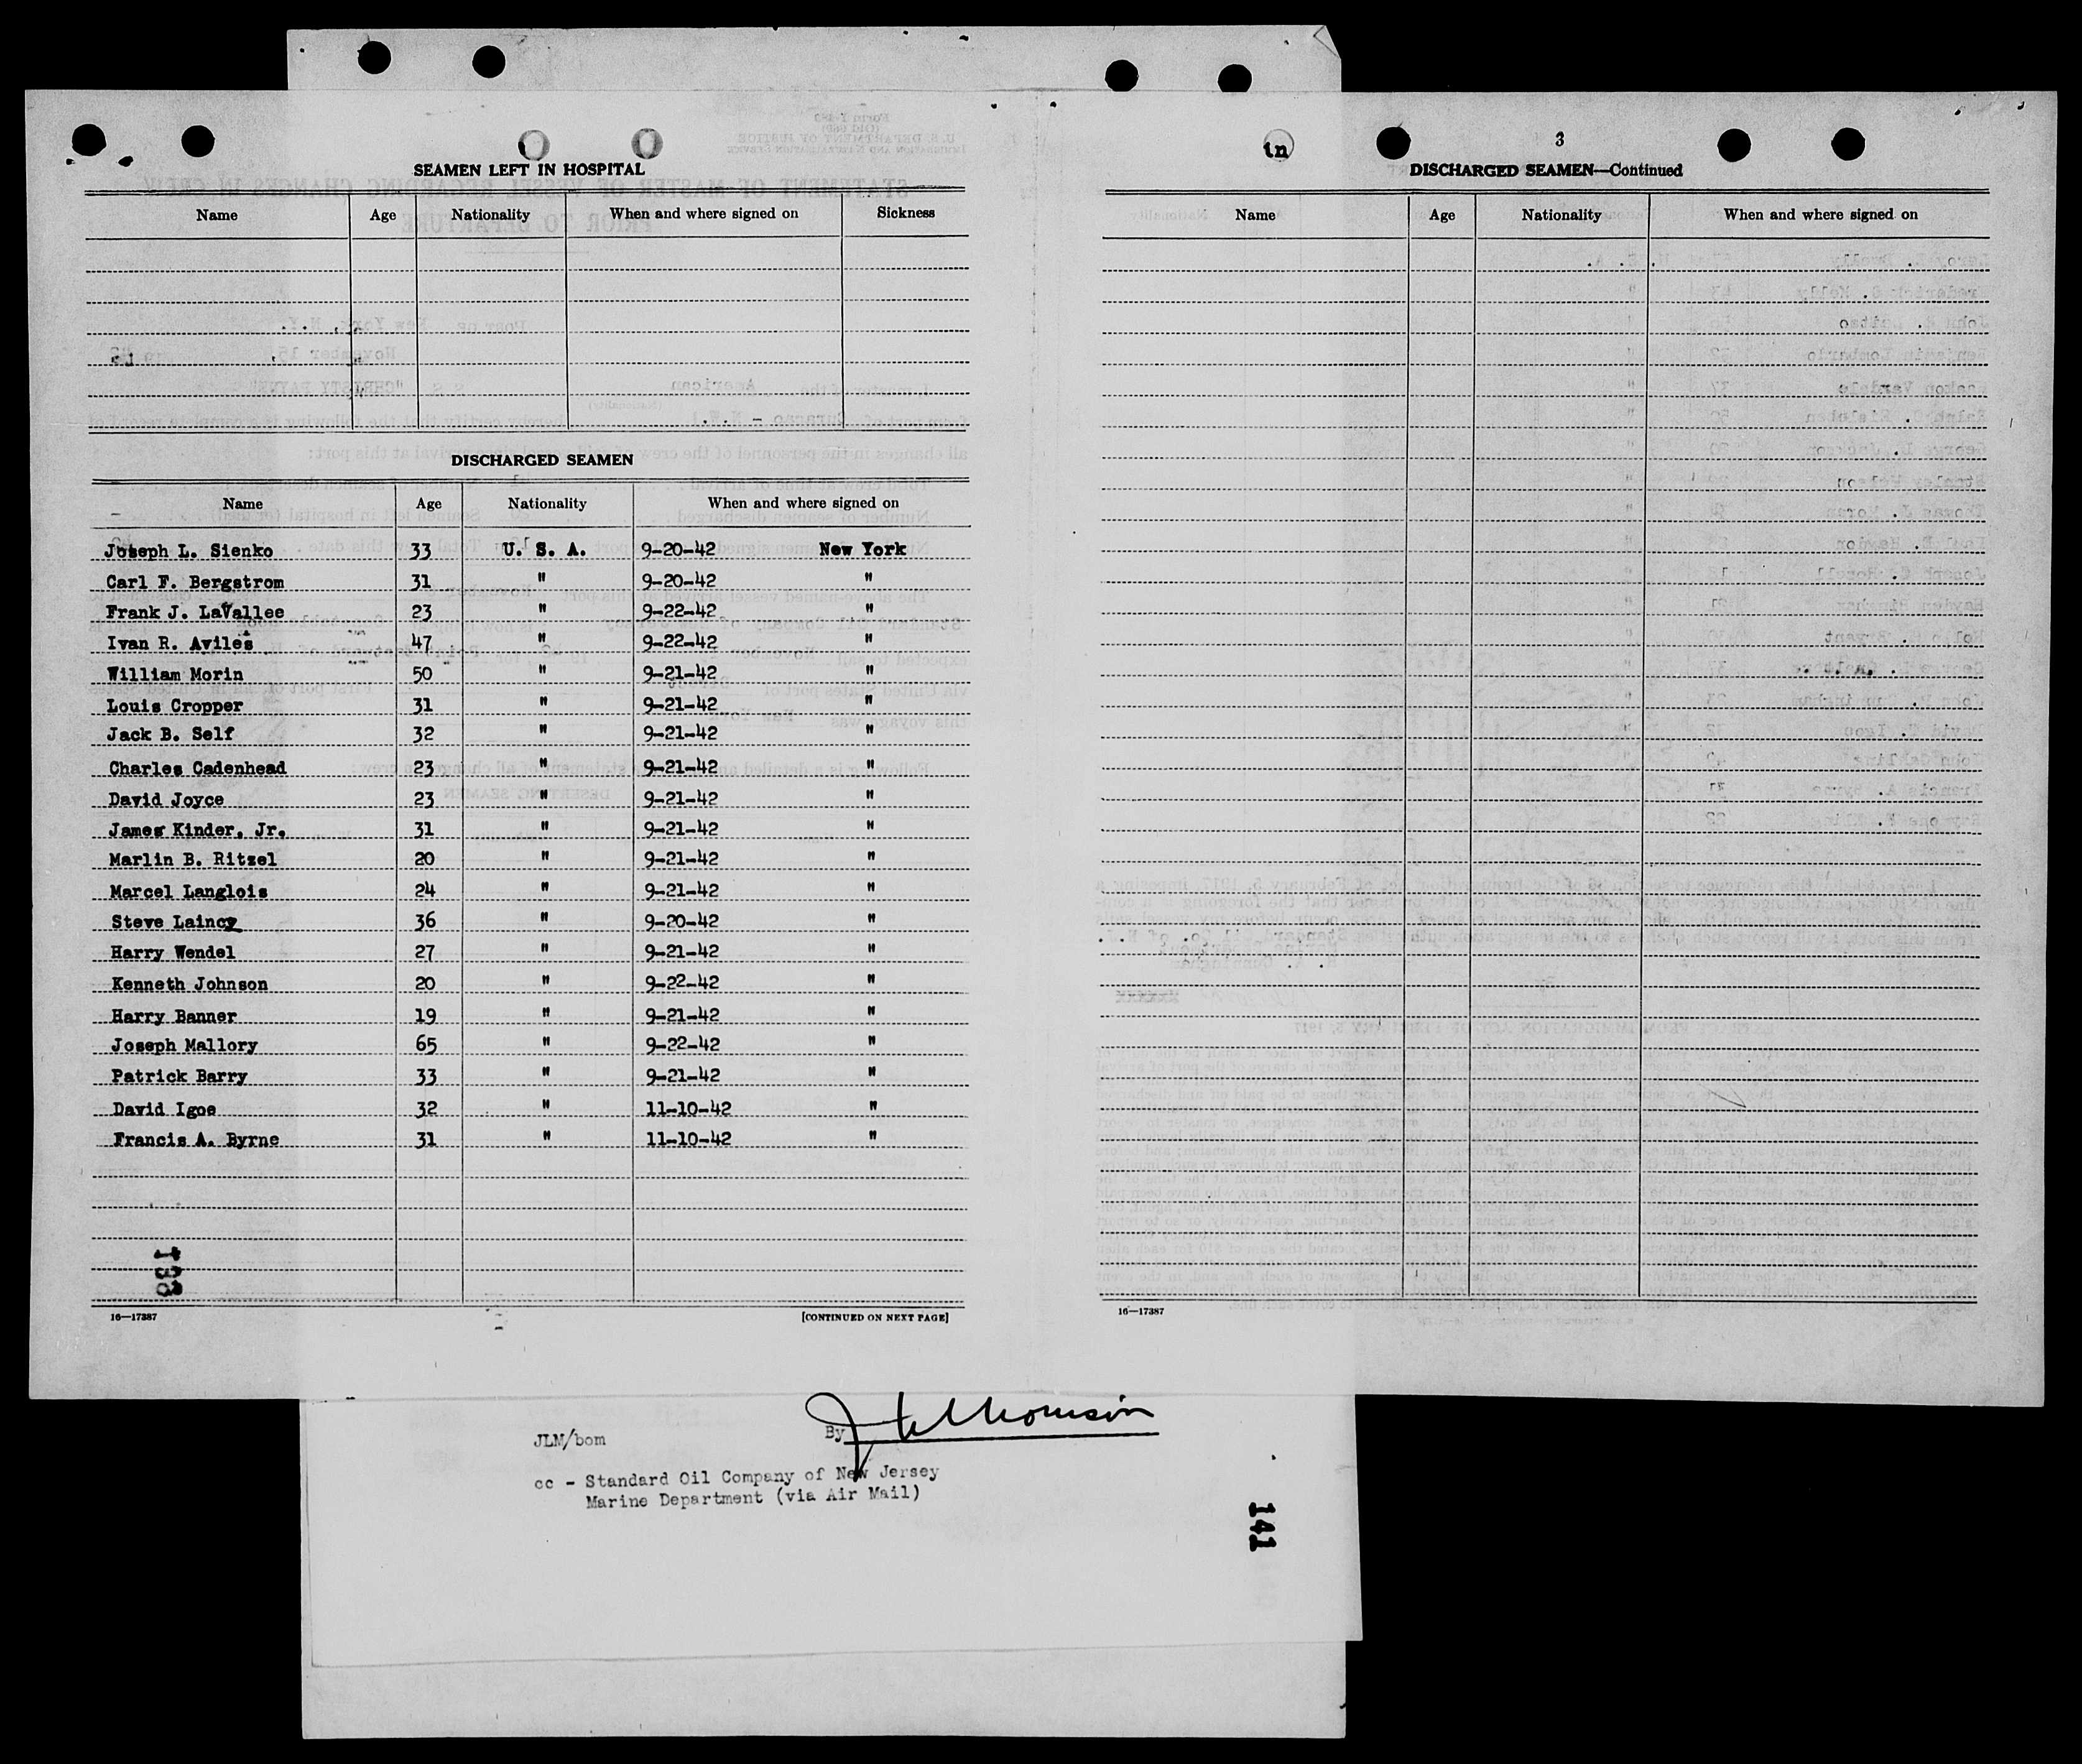 SEAMEN LEFT IN HOSPITAL
Name Age Nationality When and where signed on Sickness
DISCHARGED SEAMEN
Name Age Nationality When and where signed on
Joseph L. Sienko 33 U. S. A. 9-20-42 New York
Carl F. Bergstrom 31 " 9-20-42 "
Frank J. LaVallee 23 " 9-22-42 "
Ivan R. Aviles 47 " 9-22-42 "
William Morin 50 " 9-21-42 "
Louis Cropper 31 " 9-21-42 "
Jack B. Self 32 " 9-21-42 "
Charles Cadenhead 23 " 9-21-42 "
David Joyce 23 " 9-21-42 "
James Kinder, Jr. 31 " 9-21-42 "
Marlin B. Ritzel 20 " 9-21-42 "
Marcel Langlois 24 " 9-21-42 "
Steve Laincy 36 " 9-20-42 "
Harry Wendel 27 " 9-21-42 "
Kenneth Johnson 20 " 9-22-42 "
Harry Banner 19 " 9-21-42 "
Joseph Mallory 65 " 9-22-42 "
Patrick Barry 33 " 9-21-42 "
David Igoe 32 " 11-10-42 "
Francis A. Byrne 31 " 11-10-42 "
138
16—17387 [CONTINUED ON NEXT PAGE]
in
3
DISCHARGED SEAMEN—Continued
Name Age Nationality When and where signed on
16—17387
JLM/bom By
cc - Standard Oil Company of New Jersey
Marine Department (via Air Mail)
141